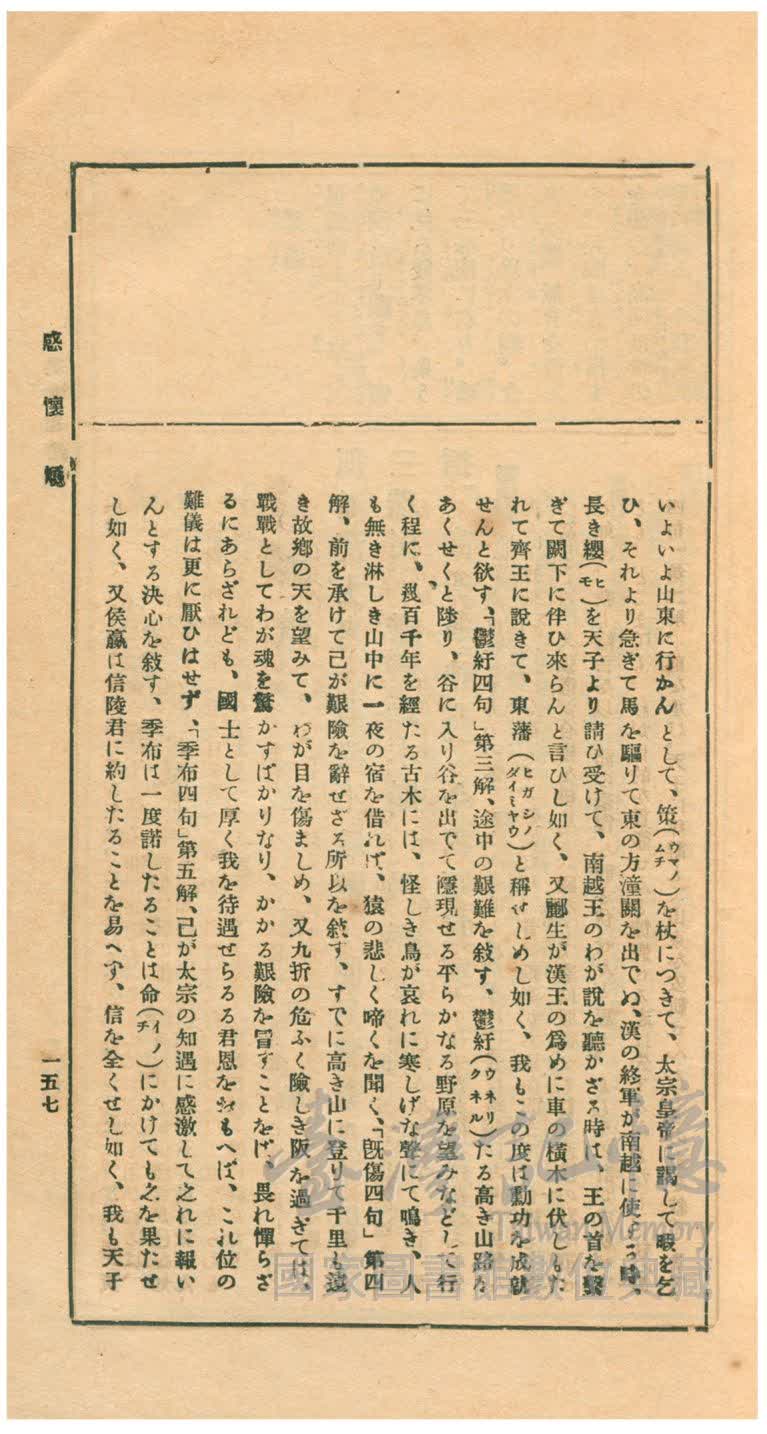 いよいよ山東に行かんとして、策(ウマノムチ)を杖につきて、太宗皇帝に謁して暇を乞
ひ、それより急ぎて馬を驅りて東の方潼關を出でぬ、漢の終軍が南越に使する時、
長き纓(ヒモ)を天子より請ひ受けて、南越王のわが說を聽かざる時は、王の首を繫
ぎて闕下に伴ひ來らんと言ひし如く、又酈生が漢王の爲めに車の橫木に伏しもた
れて齊王に說きて、東藩(ヒガシノダイミヤウ)と稱せしめし如く、我もこの度は勳功を成就
せんと欲す、「鬱紆四句」第三解、途中の艱難を敍す、鬱紆(ウネリクネル)たる高き山路を
あくせくと陟り、谷に入り谷を出でて隱現せる平らかなる野原を望みなどして行
く程に、幾百千年を經たる古木には、怪しき鳥が哀れに寒しげな聲にて鳴き、人
も無き淋しき山中に一夜の宿を借れば、猿の悲しく啼くを聞く、「旣傷四句」第四
解、前を承けて己が艱險を辭せざる所以を敍す、すでに高き山に登りて千里も遠
き故鄉の天を望みて、わが目を傷ましめ、又九折の危ふく險しき阪を過ぎては、
戰戰としてわが魂を驚かすばかりなり、かかる艱險を冒すことをば、畏れ憚らざ
るにあらざれども、國士として厚く我を待遇せらるる君恩をおもへば、これ位の
難儀は更に厭ひはせず、「季布四句」第五解、己が太宗の知遇に感激して之れに報い
んとする決心を敍す、季布は一度諾したることは命(イノチ)にかけても之を果たせ
し如く、又侯嬴は信陵君に約したることを易へず、信を全くせし如く、我も天子
感懷
一五七
臺灣記憶
Taiwan Memory
國家圖書館數位典藏